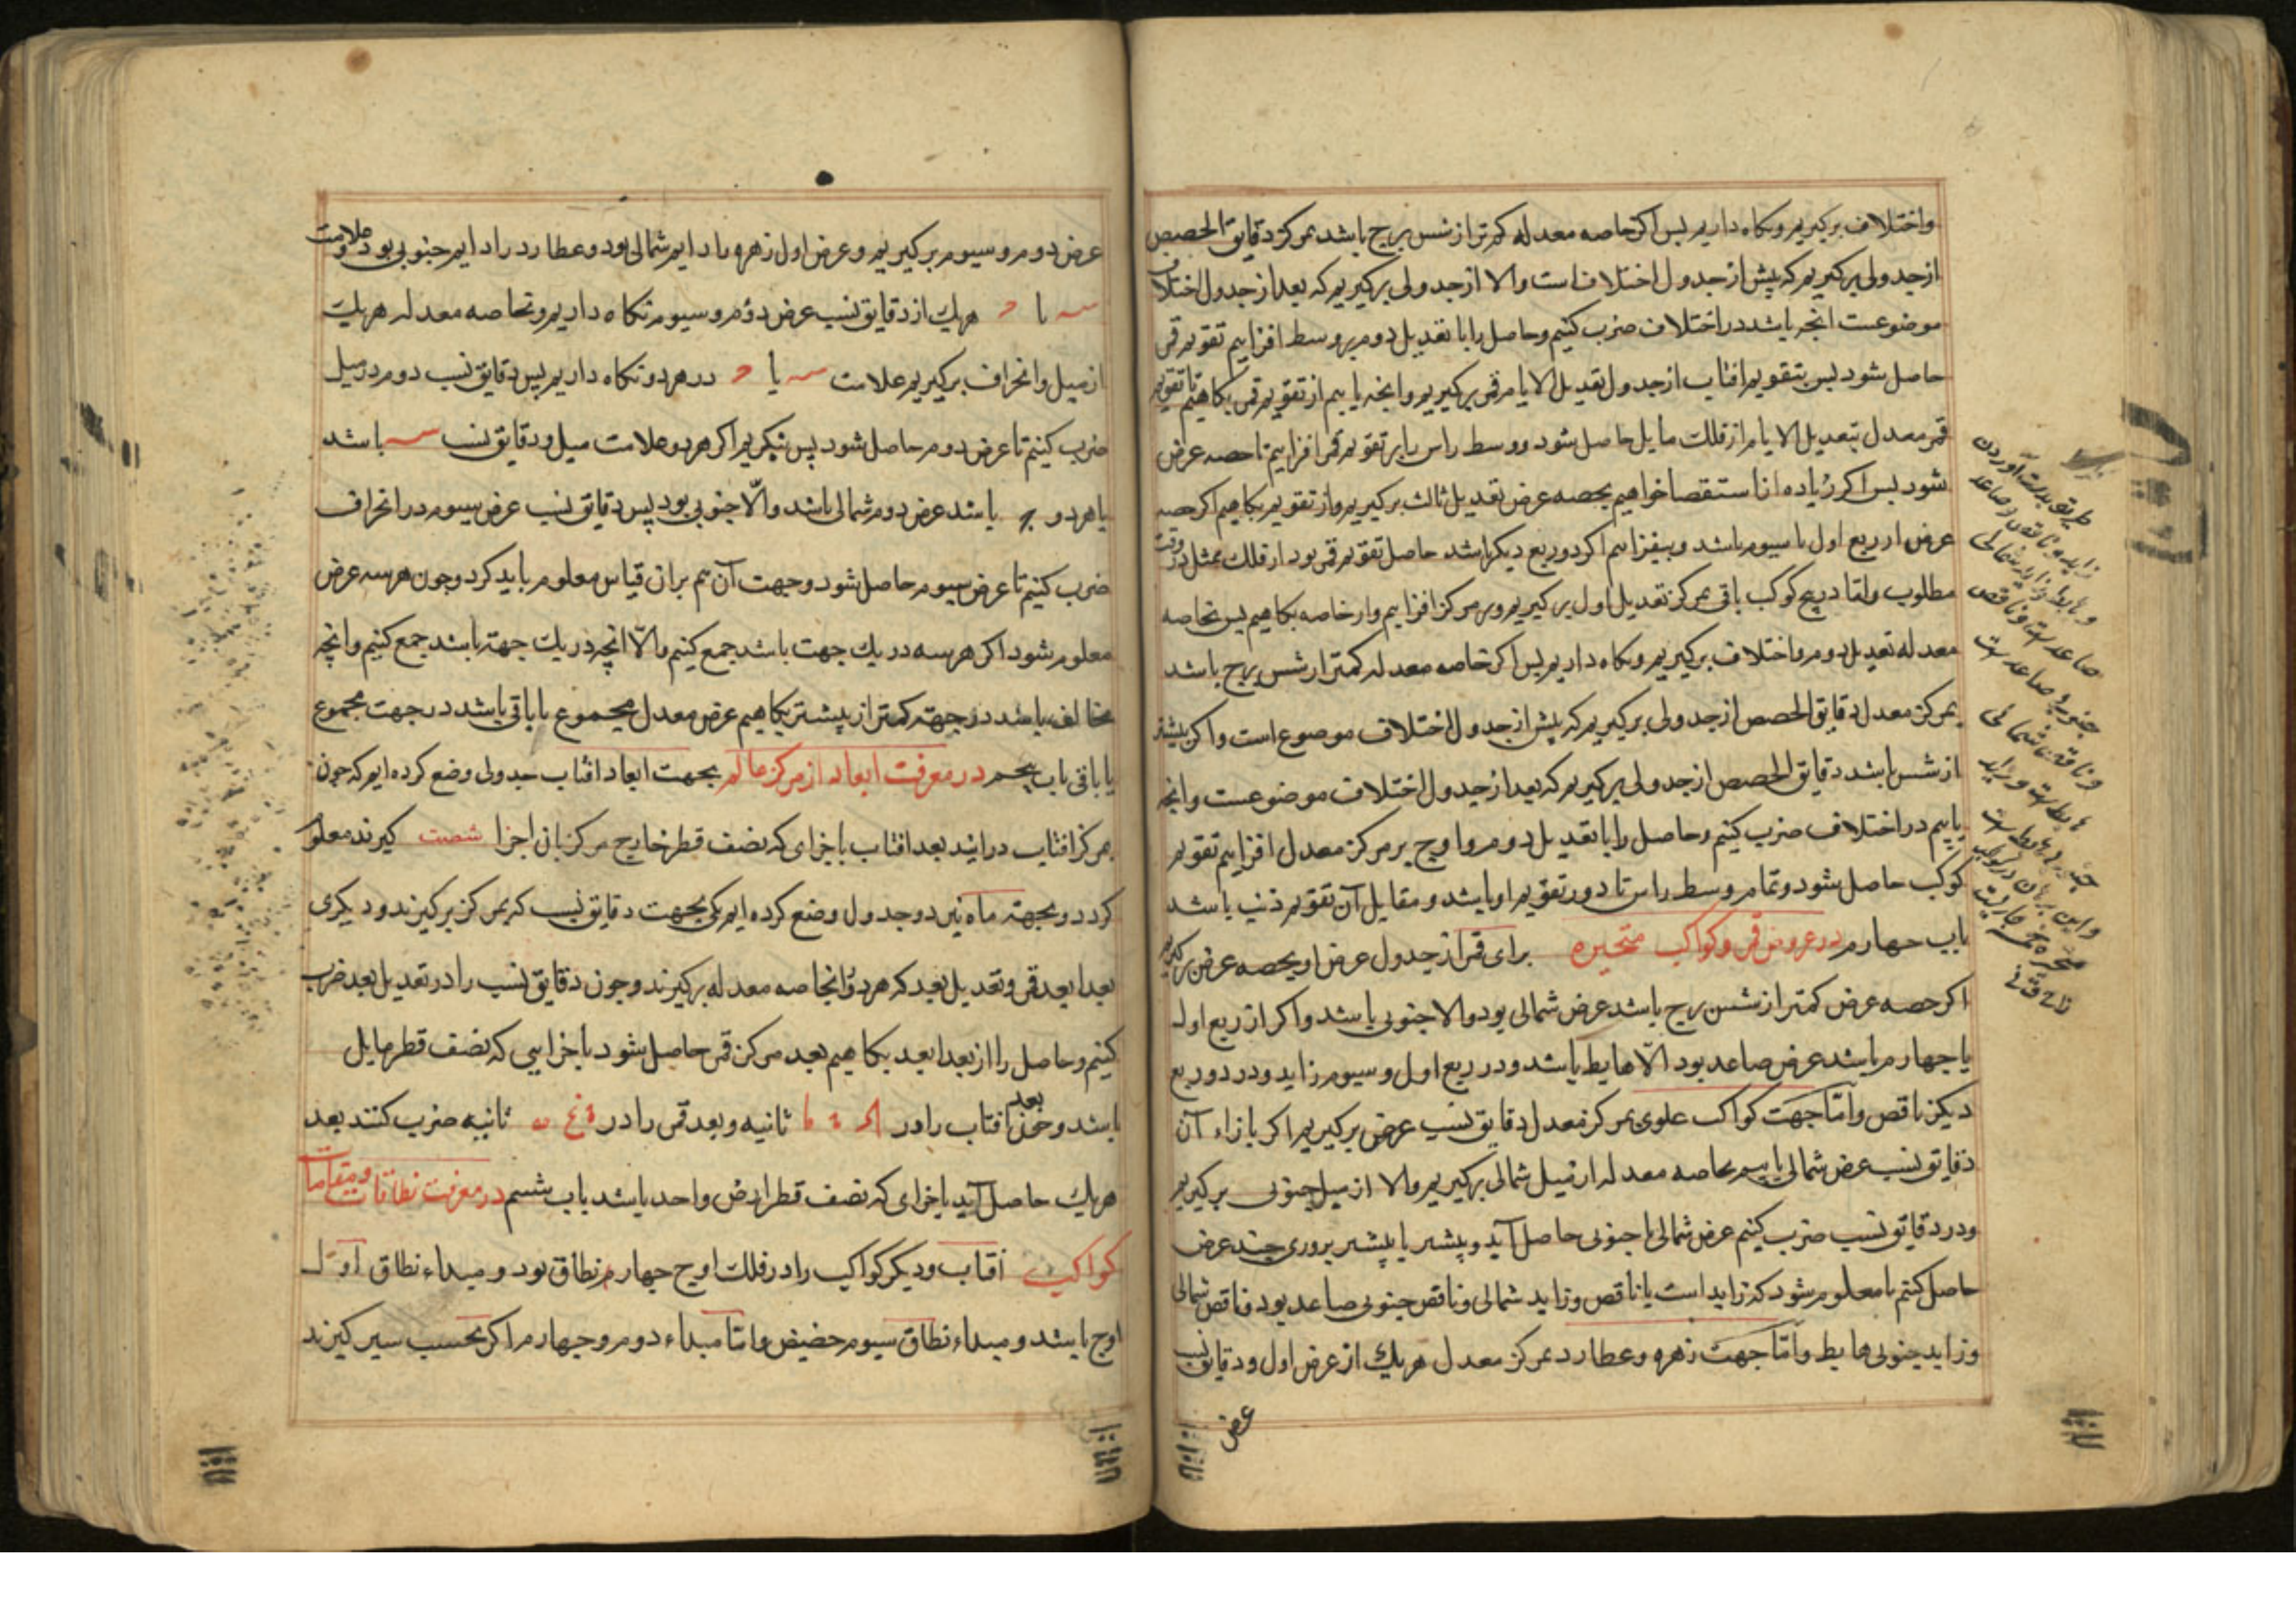 واختلاف برکیریم ونکاه داریم بس اکر خاصه معدله کمتر از شس برج باشد بمرکز دقایق الحصص
ازجدولی برکیریم که پیش از جدول اختلاف است والا ازجدولی برکیریم که بعد از جدول اختلاف
موضوعست انچه باشد در اختلاف ضرب کنیم وحاصل را با تعدیل دوم بر وسط افزاییم تقویم قمر
حاصل شود بس بتقویم افتاب از جدول تعدیل الایام قمر برکیریم وانچه یابیم از تقویم قمر بکاهیم تا تقویم
قمر معدل بتعدیل الایام از فلك مایل حاصل شود ووسط راس را بر تقویم قمر افزاییم تا حصه عرض
شود بس اکر زیاده از استقصا خواهیم بحصه عرض تعدیل ثالث برکیریم واز تقویم بکاهیم اکر حصه
عرض از ربع اول یا سیوم باشد وبیفزاییم اکر دو ربع دیکر باشد حاصل تقویم قمر بود از فلك ممثل در وقت
مطلوب واما در پنج کوکب باقی بمرکز تعدیل اول برکیریم وبر مرکز افزاییم واز خاصه بکاهیم بس بخاصه
معدله تعدیل دوم واختلاف برکیریم ونکاه داریم بس اکر خاصه معدله کمتر از شس برج باشد
بمرکز معدل دقایق الحصص از جدولی برکیریم که پیش از جدول اختلاف موضوع است واکر بیشتر
از شس باشد دقایق الحصص از جدولی برکیریم که بعد از جدول اختلاف موضوعست وانچه
یابیم در اختلاف ضرب کنیم وحاصل را با تعدیل دوم واوج بر مرکز معدل افزاییم تقویم
کوکب حاصل شود وتمام وسط راس تا دور تقویم او باشد ومقابل آن تقویم ذنب باشد
باب جهارم در عروض قمر وکواکب متحیره برای قمر از جدول عرض او بحصه عرض برکیریم
اکر حصه عرض کمتر از شس برج باشد عرض شمالی بود والا جنوبی باشد واکر از ربع اول
یا جهارم باشد عرض صاعد بود الّا هابط باشد ودر ربع اول وسیوم زاید ودر دو ربع
دیکر ناقص وامّا جهت کواکب علوی بمرکز معدل دقایق نسب عرض برکیریم اکر بازاء آن
دقایق نسب عرض شمالی یابیم بخاصه معدله از میل شمالی برکیریم والا از میل جنوبی برکیریم
ودر دقایق نسب ضرب کنیم عرض شمالی یا جنوبی حاصل آید وپیشتر یا پیشتر بروزی چند عرض
حاصل کنیم تا معلوم شود که زاید است یا ناقص وزاید شمالی وناقص جنوبی صاعد بود وناقص شمالی
وزاید جنوبی هابط وامّا جهت زهره وعطارد بمرکز معدل هریك از عرض اول ودقایق نسب
عرض
عرض دوم وسیوم برکیریم وعرض اول زهره را دایم شمالی بود وعطارد را دایم جنوبی بود وعلامت
یا هریك از دقایق نسب عرض دوم وسیوم نکاه داریم وبخاصه معدله هریك
از میل وانحراف برکیریم علامت یا در هر دو نکاه داریم بس دقایق نسب دوم در میل
ضرب کنیم تا عرض دوم حاصل شود پس بنکریم اکر هر دو علامت میل ودقایق نسب باشد
یا هر دو باشد عرض دوم شمالی باشد والّا جنوبی بود پس دقایق نسب عرض سیوم در انحراف
ضرب کنیم تا عرض سیوم حاصل شود وجهت آن هم بران قیاس معلوم باید کرد وجون هر سه عرض
معلوم شود اکر هر سه در یك جهت باشد جمع کنیم والّا انچه در یك جهة باشد جمع کنیم وانچه
مخالف باشد در جهة کمتر از بیشتر بکاهیم عرض معدل مجموع یا باقی باشد در جهت مجموع
یا باقی باب پنجم در معرفت ابعاد از مرکز عالم بجهت ابعاد افتاب جدولی وضع کرده ایم که جون
بمرکز افتاب درایند بعد افتاب باجزای که نصف قطر خارج مرکز بان اجزا شصت کیرند معلوم
کردد وبجهة ماه نیز دو جدول وضع کرده ایم یکی بجهت دقایق نسب که بمرکز برکیرند ودیکری
بعد ابعد قمر وتعدیل بعد که هر دو بخاصه معدله برکیرند وجون دقایق نسب را در تعدیل بعد ضرب
کنیم وحاصل را از بعد ابعد بکاهیم بعد مرکز قمر حاصل شود باجزایی که نصف قطر مایل
باشد وجون بعد افتاب را در ثانیه وبعد قمر را در ثانیه ضرب کنند بعد
هریك حاصل آید باجزای که نصف قطر ارض واحد باشد باب ششم در معرفت نطاقات ومقامات
کواکب آفتاب ودیکر کواکب را در فلك اوج جهار نطاق بود ومبداء نطاق اوّل
اوج باشد ومبداء نطاق سیوم حضیض وامّا مبداء دوم وجهارم اکر بحسب سیر کیرند